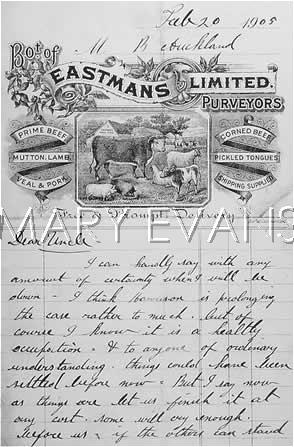 Feb 20 1905
M B Auckland
Bot. of
EASTMANS LIMITED.
PURVEYORS
PRIME BEEF
MUTTON, LAMB,
VEAL & PORK
CORNED BEEF
PICKLED TONGUES
SHIPPING SUPPLIED
Free & Prompt Delivery
MARY EVANS
Dear Uncle
I can hardly say with any
amount of certainty when I will be
down - I think Harrison is prolonging
the case rather to much. but of
course I know it is a healthy
occupation & to anyone of ordinary
understanding. things could have been
settled before now - But I say now
as things are let us finish it at
any cost. some will cry enough.
before us - if the others can stand